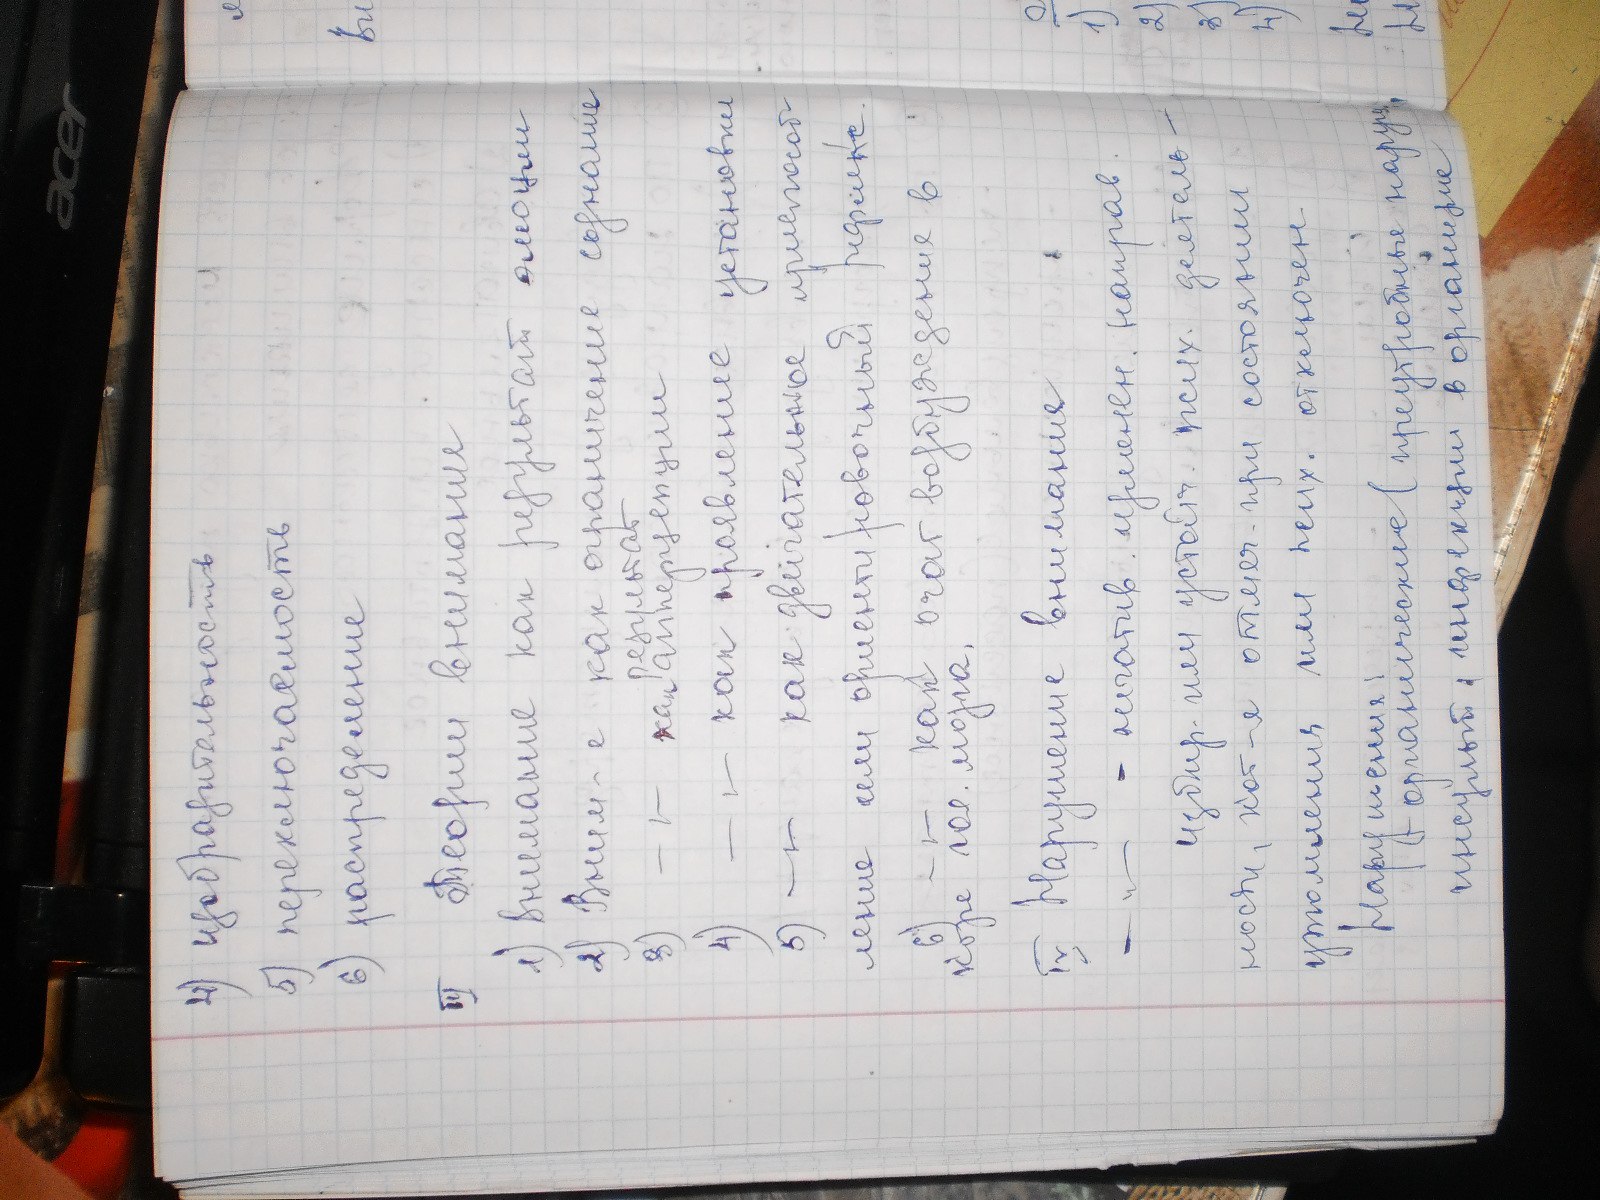 4) избирательность
5) переключаемость
6) распределение
III Теории внимание
1) Внимание как результат эмоции
2) Вним-е как ограничение сознание
3) —〃— как результат апперцепции
4) —〃— как проявление установки
5) —〃— как двигательное приспособ
ление или ориентировочный рефлекс.
6) —〃— как очаг возбуждение в
коре гол. мозга.
IV Нарушение внимание
—〃— - негатив. изменен. направ.
избир. или устойч. псих. деятель-
ности, кот-е отмеч. при состоянии
утомления или псих. отключен.
Нарушения:
- органические (
инсульт, инфекции в организме
acer